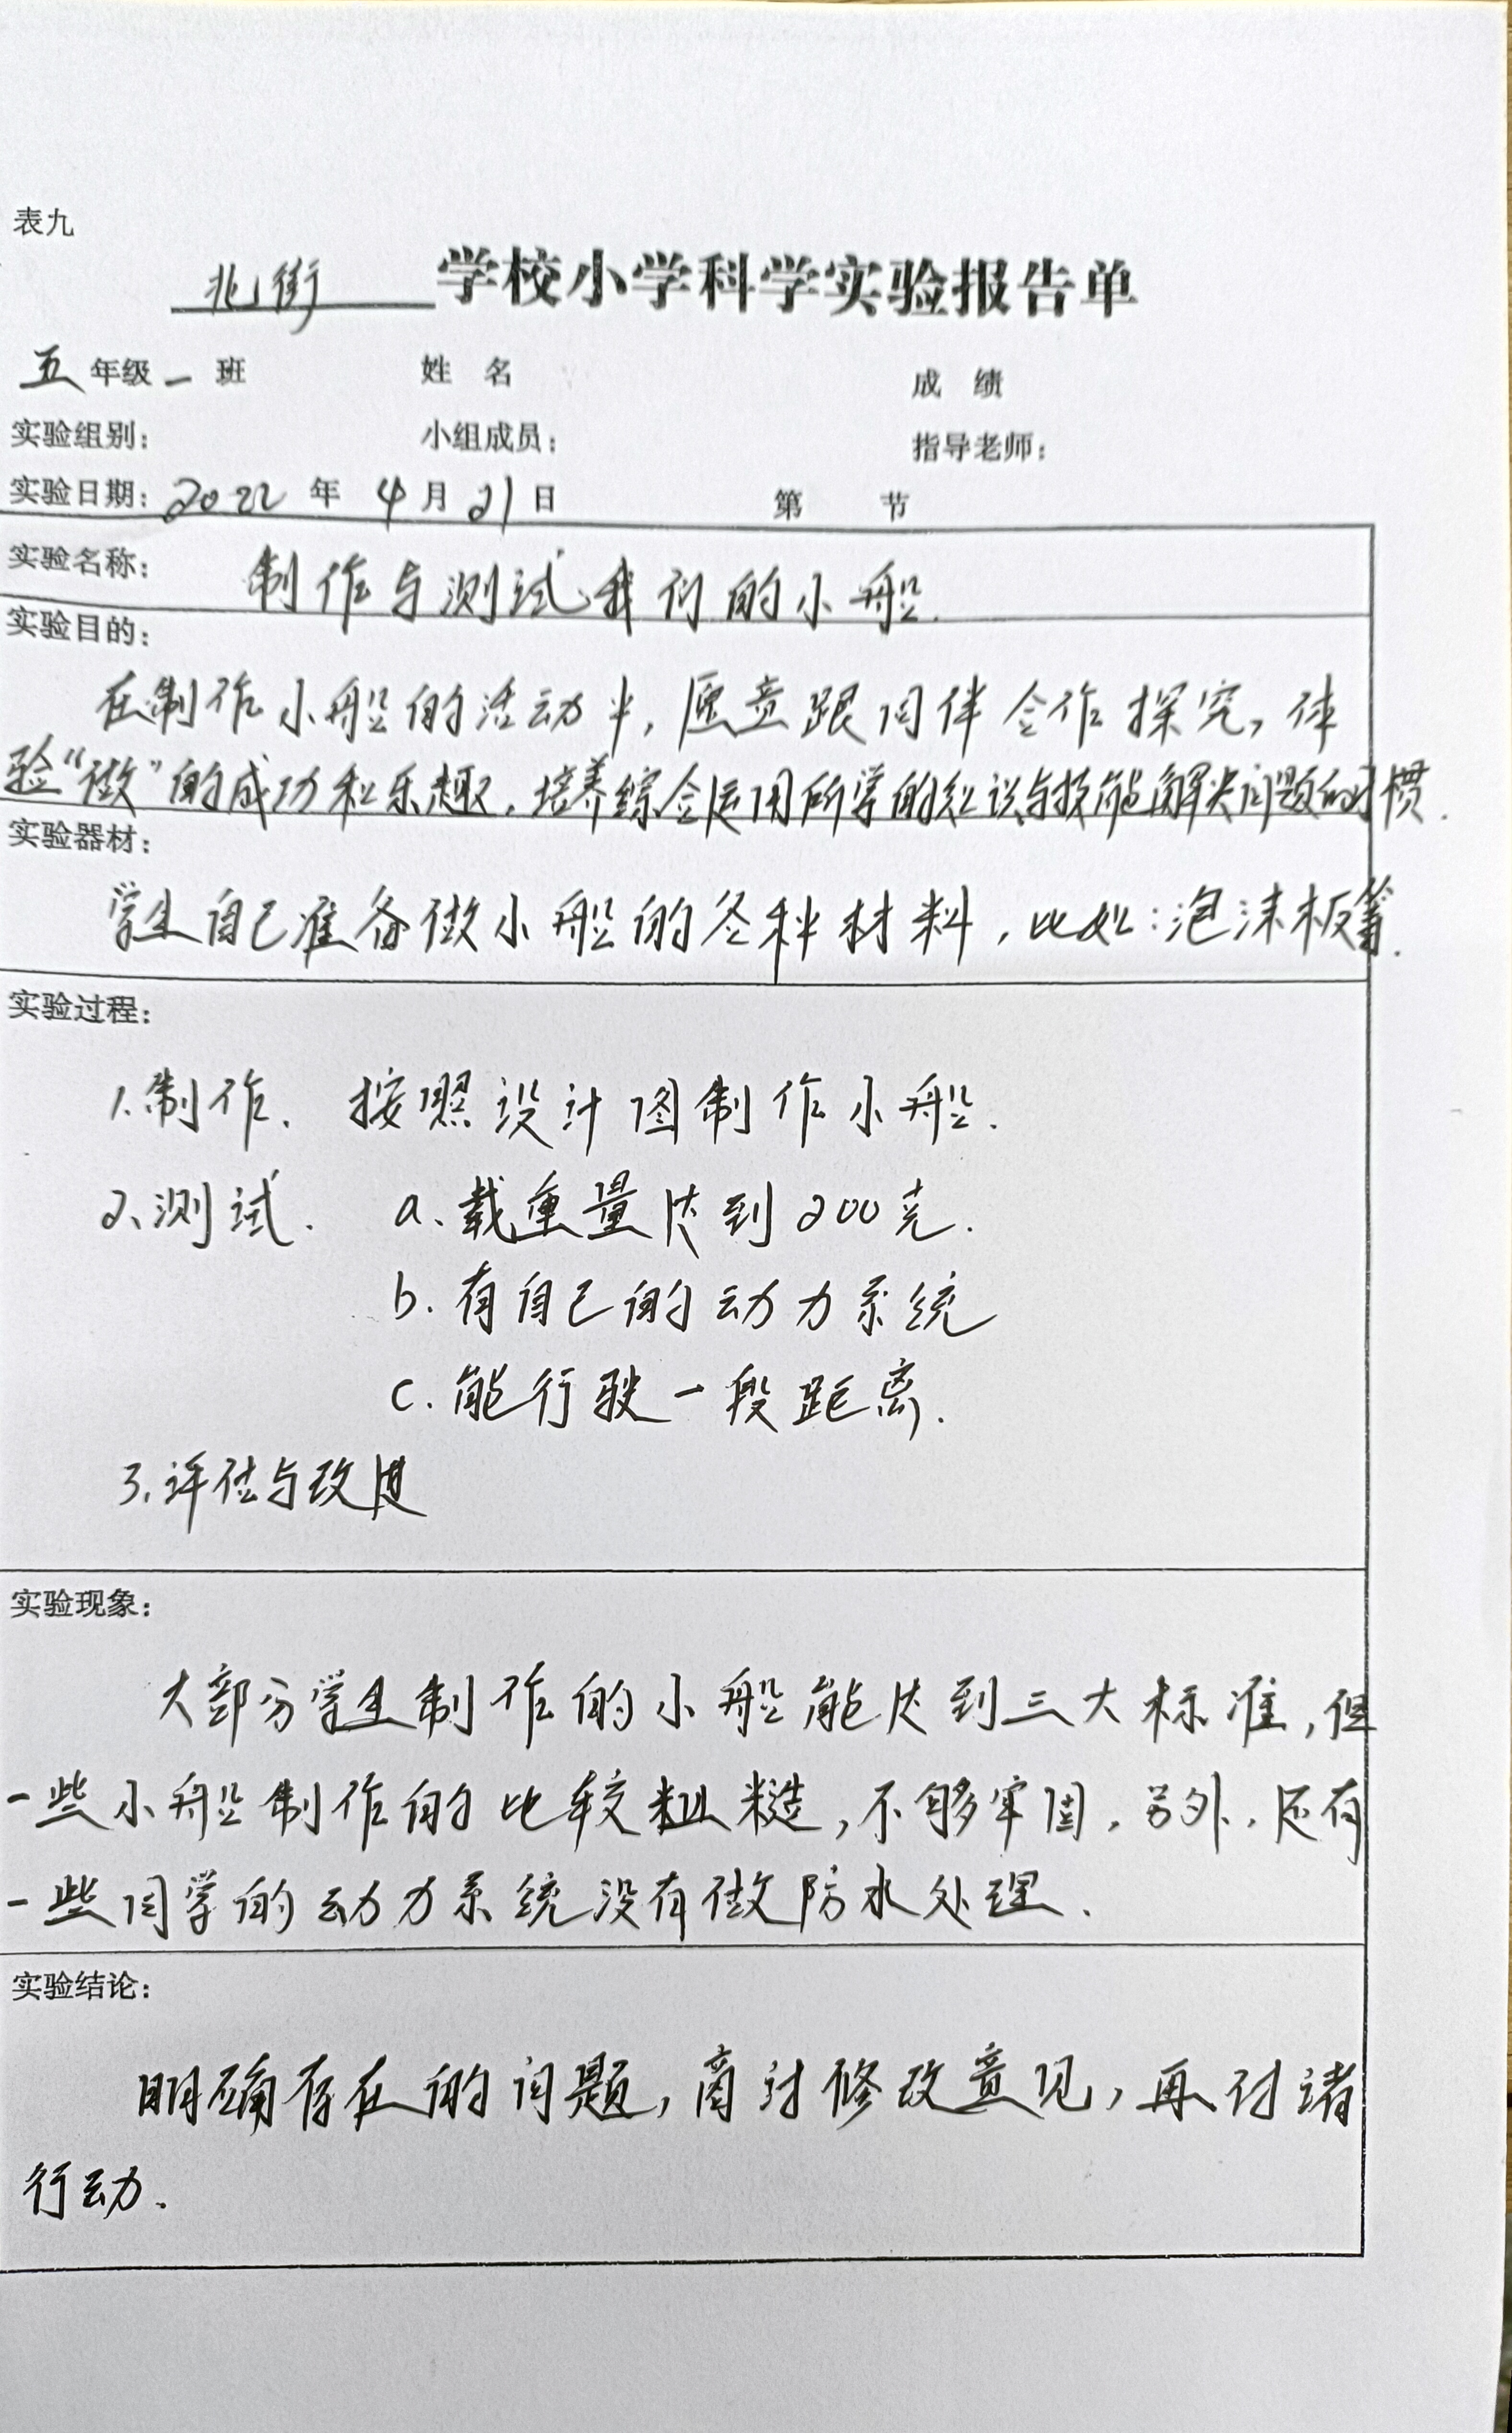 表九
北街 学校小学科学实验报告单
五 年级 一 班 姓 名 成 绩
实验组别: 小组成员: 指导老师:
实验日期: 2022 年 4 月 21 日 第 节
实验名称: 制作与测试我们的小船.
实验目的:
在制作小船的活动中,愿意跟同伴合作探究,体
验“做”的成功和乐趣.培养综合运用所学的知识与技能解决问题的习惯.
实验器材:
学生自己准备做小船的各种材料,比如:泡沫板等.
实验过程:
1.制作. 按照设计图制作小船.
2.测试. a.载重量达到200克.
b.有自己的动力系统
c.能行驶一段距离.
3.评估与改进
实验现象:
大部分学生制作的小船能达到三大标准,但
一些小船制作的比较粗糙,不够牢固.另外.还有
一些同学的动力系统没有做防水处理.
实验结论:
明确存在的问题,商讨修改意见,再付诸
行动.